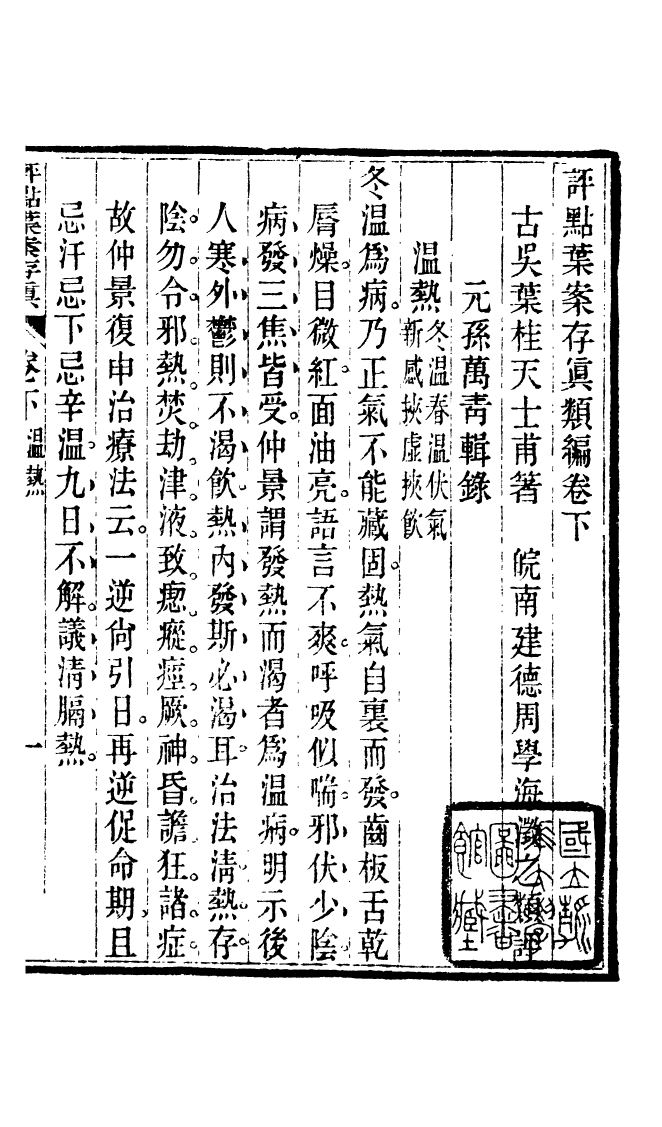 評點葉案存真類編卷下
古吳葉桂天士甫著　皖南建德周學海澂之
元孫萬青輯錄
溫熱
冬溫春溫伏氣
新感挾虛挾飲
冬溫爲病。乃正氣不能藏固。熱氣自裏而發。齒板舌乾
脣燥。目微紅。面油亮。語言不爽。呼吸似喘。邪伏少陰
病發三焦皆受。仲景謂發熱而渴者爲溫病。明示後
人寒外鬱則不渴飲熱內發斯必渴耳治法淸熱存
陰。勿令邪熱焚劫津液。致瘛瘲。痙厥。神昏譫狂諸症
故仲景復申治療法云。一逆尙引日。再逆促命期。且
忌汗忌下忌辛溫。九日不解。議淸膈熱。
評點葉案存真
卷下　溫熱
一
國立
圖書
館藏